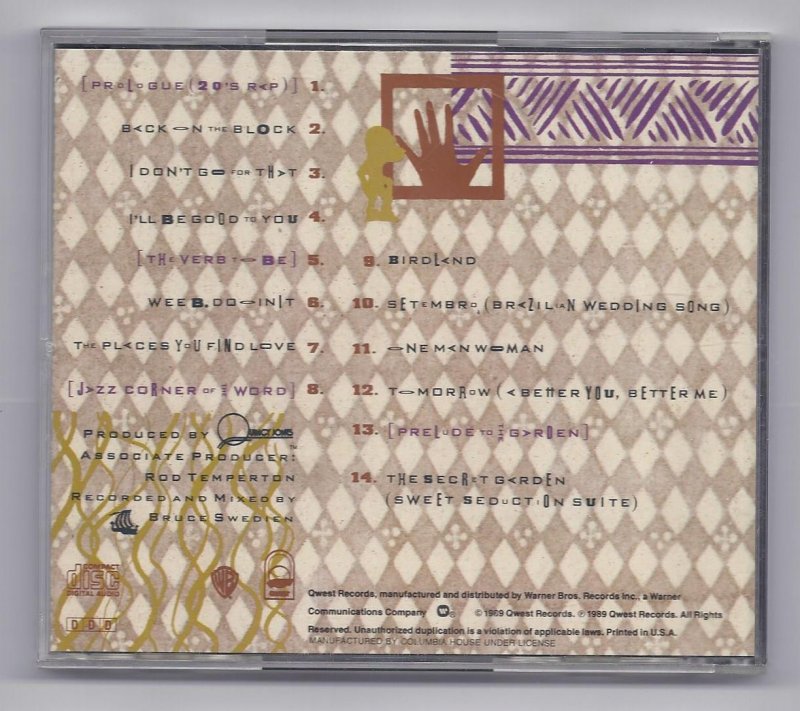 [PROLOGUE (2Q'S RAP)] 1.
BACK ON THE BLOCK 2.
I DON'T GO FOR THAT 3.
I'LL BE GOOD TO YOU 4.
[THE VERB TO BE] 5.
WEE B. DOOINIT 6.
THE PLACES YOU FIND LOVE 7.
[JAZZ CORNER OF THE WORLD] 8.
9. BIRDLAND
10. SETEMBRO (BRAZILIAN WEDDING SONG)
11. ONE MAN WOMAN
12. TOMORROW (A BETTER YOU, BETTER ME)
13. [PRELUDE TO THE GARDEN]
14. THE SECRET GARDEN
(SWEET SEDUCTION SUITE)
PRODUCED BY QUINCY JONES™
ASSOCIATE PRODUCER:
ROD TEMPERTON
RECORDED AND MIXED BY
BRUCE SWEDIEN
COMPACT
disc
DIGITAL AUDIO
WB
QWEST
DDD
Qwest Records, manufactured and distributed by Warner Bros. Records Inc., a Warner
Communications Company ® © 1989 Qwest Records. ℗ 1989 Qwest Records. All Rights
Reserved. Unauthorized duplication is a violation of applicable laws. Printed in U.S.A.
MANUFACTURED BY COLUMBIA HOUSE UNDER LICENSE